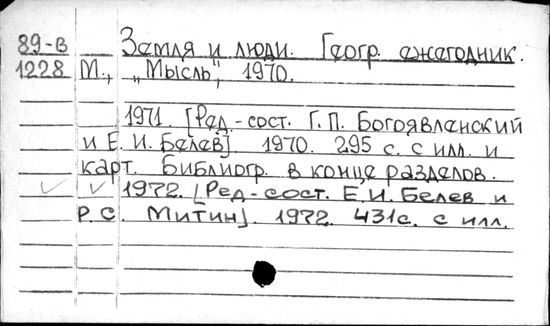 89-В Земля и люди. Геогр. ежегодник.
1228 М., „Мысль", 1970.
1971. [Ред.-сост. Г.П. Богоявленский
и Е.И. Белев]. 1970. 295 с. с илл. и
карт. Библиогр. в конце разделов.
✓ ✓ 1972. [Ред.-сост. Е.И. Белев и
Р.С. Митин]. 1972. 431с. с илл.